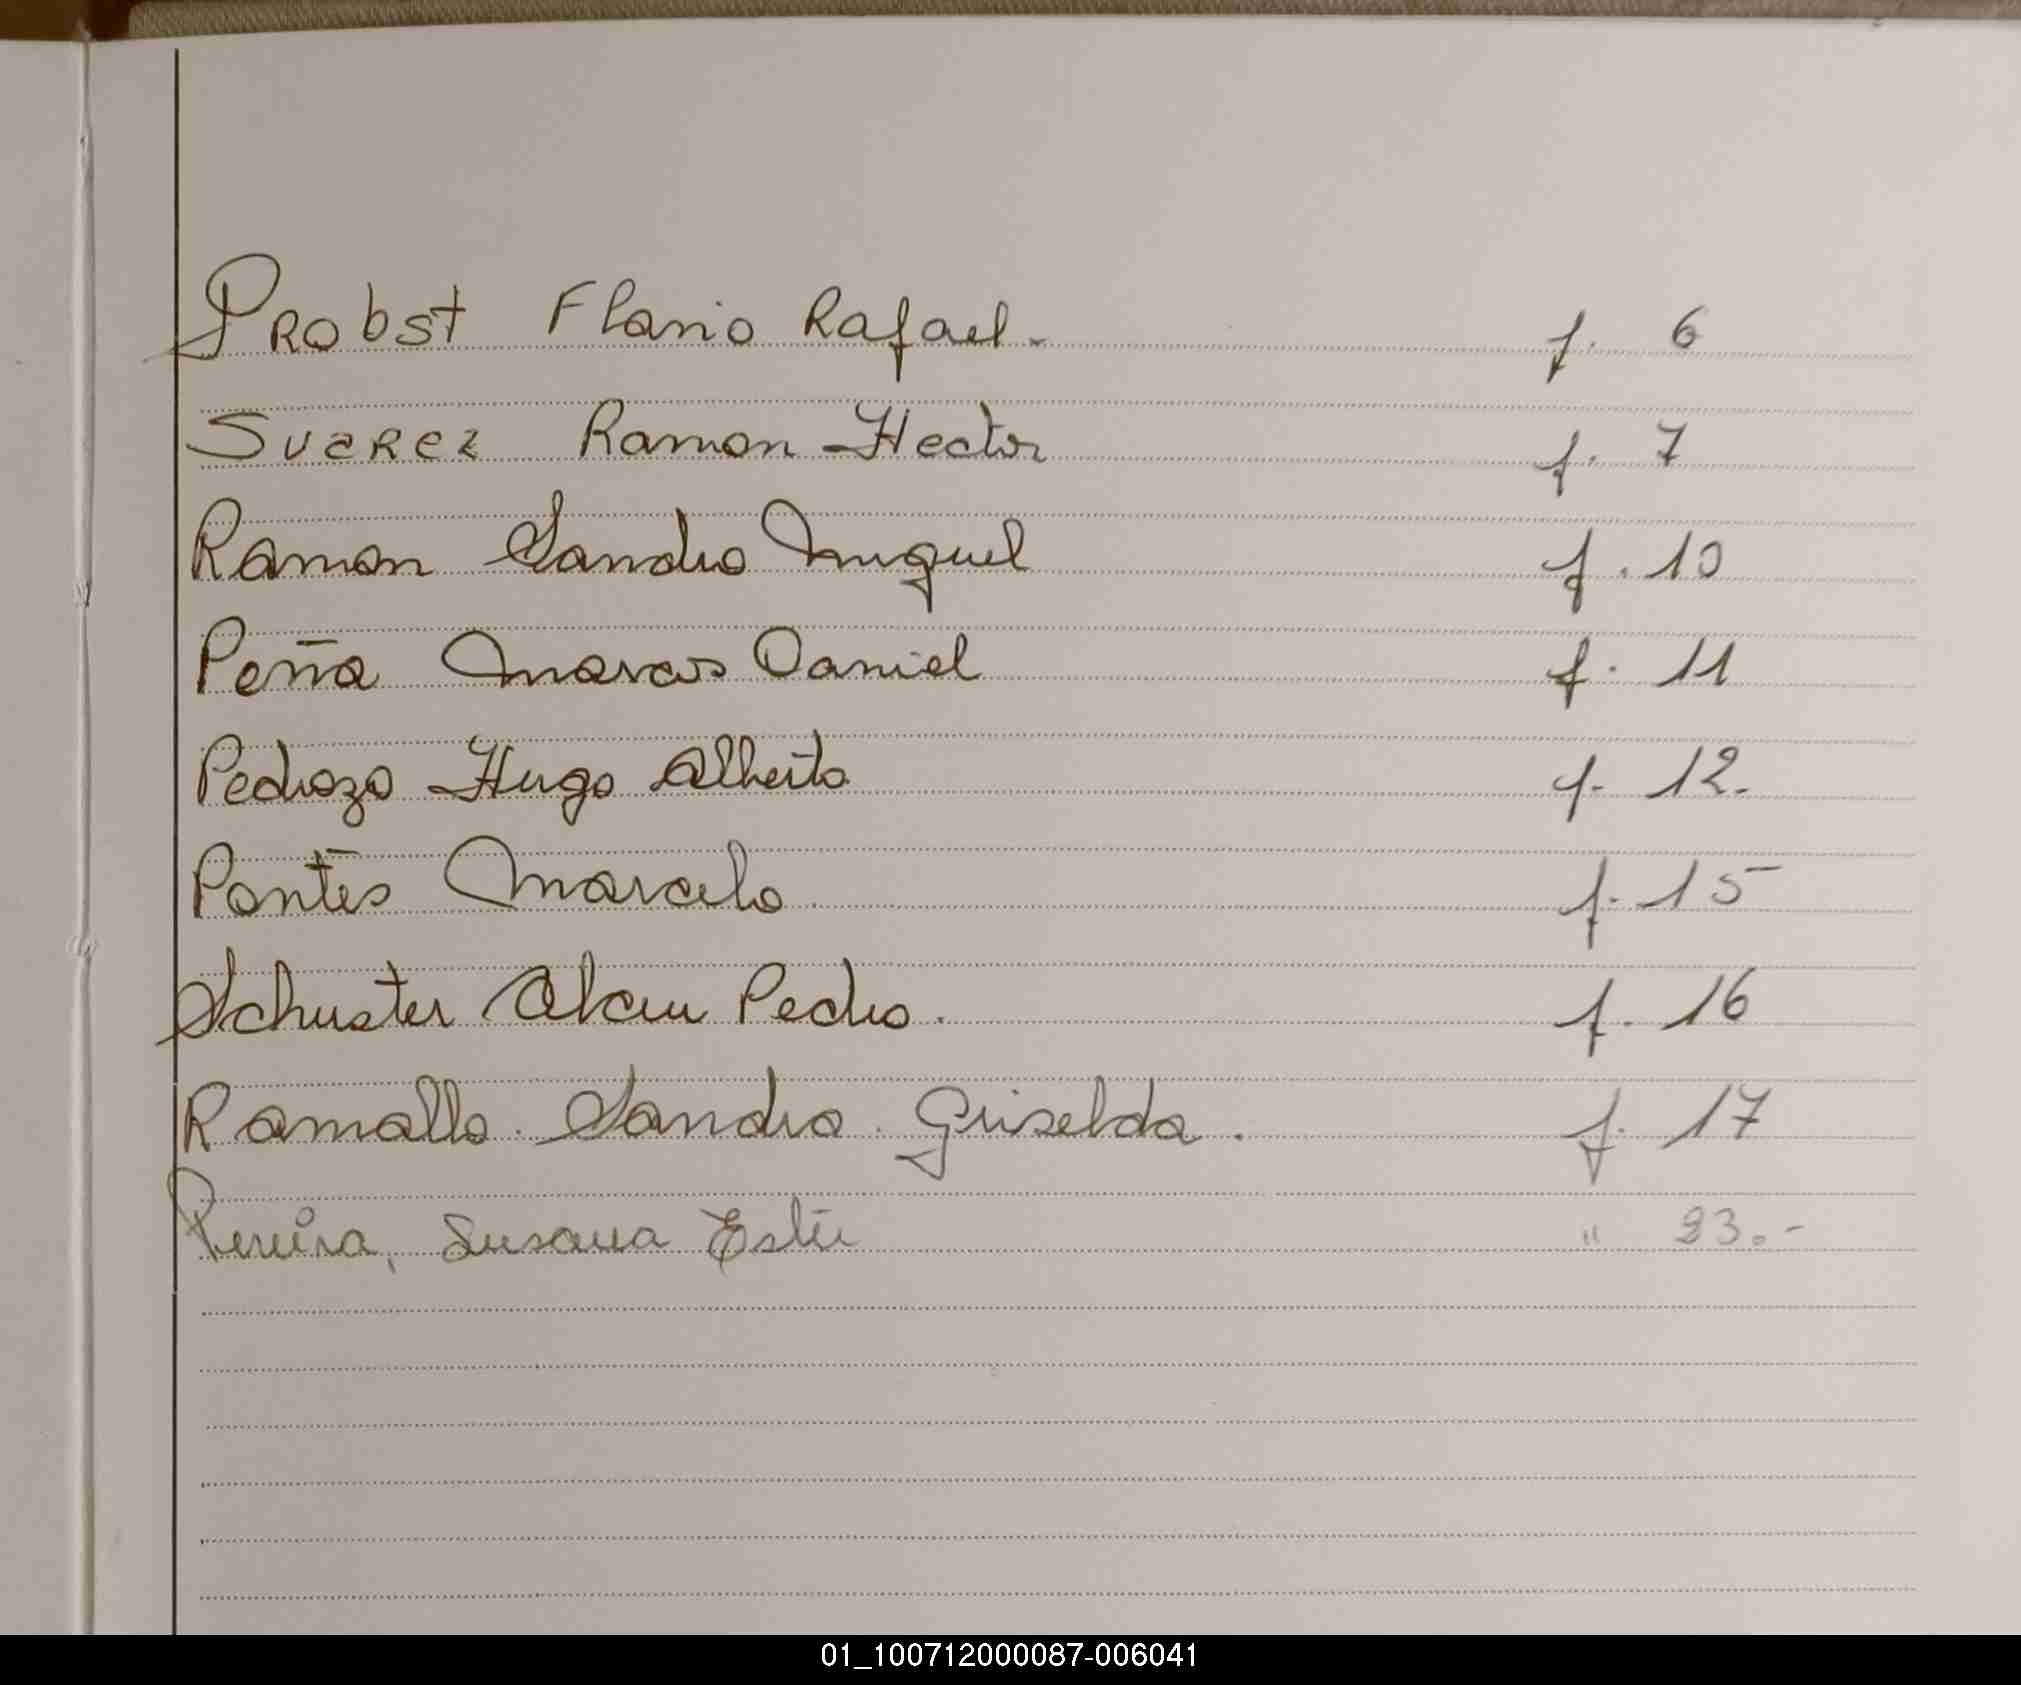 Probst Flavio Rafael. f. 6
Suarez Ramon Hector f. 7
Ramon Sandro Miguel f. 10
Peña Marcos Daniel f. 11
Pedrozo Hugo Alberto f. 12.
Pontes Marcelo f. 15
Schuster Pedro. f. 16
Ramallo. Sandra. Griselda. f. 17
Pereira, Susana Ester " 23.-
01_100712000087-006041